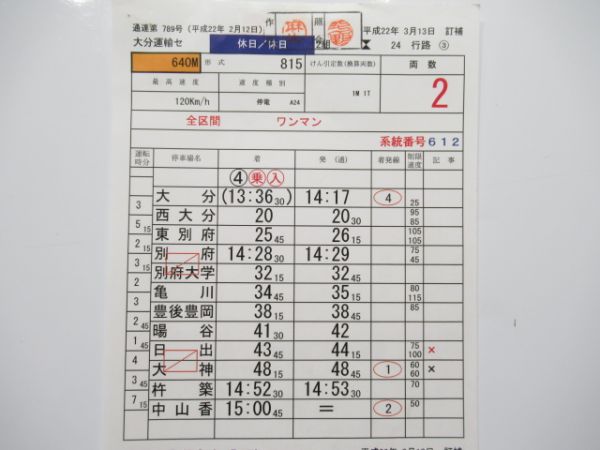 通達第 789号 (平成22年 2月12日)
作
照合
平成22年 3月13日 訂補
大分運輸セ
休日/休日
2組
24 行路 ③
640M
形式
815
けん引定数(換算両数)
両数
最高速度
速度種別
1M 1T
2
120Km/h
停電 A24
全区間 ワンマン
系統番号612
運転時分
停車場名
着
発 (通)
着発線
制限速度
記事
④ 乗 入
大分 (13:36 30) 14:17 4 25
3
西大分 20 20 30 95 85
5 15
東別府 25 45 26 15 105 105
2 15
別府 14:28 30 14:29 75 45
3 15
別府大学 32 15 32 45
2
亀川 34 45 35 15 80 115
3
豊後豊岡 38 15 38 45 85
2 45
暘谷 41 30 42
1 45
日出 43 45 44 15 75 100 ×
4
大神 48 15 48 45 1 60 60 ×
3 45
杵築 14:52 30 14:53 30 70
7 15
中山香 15:00 45 = 2 50